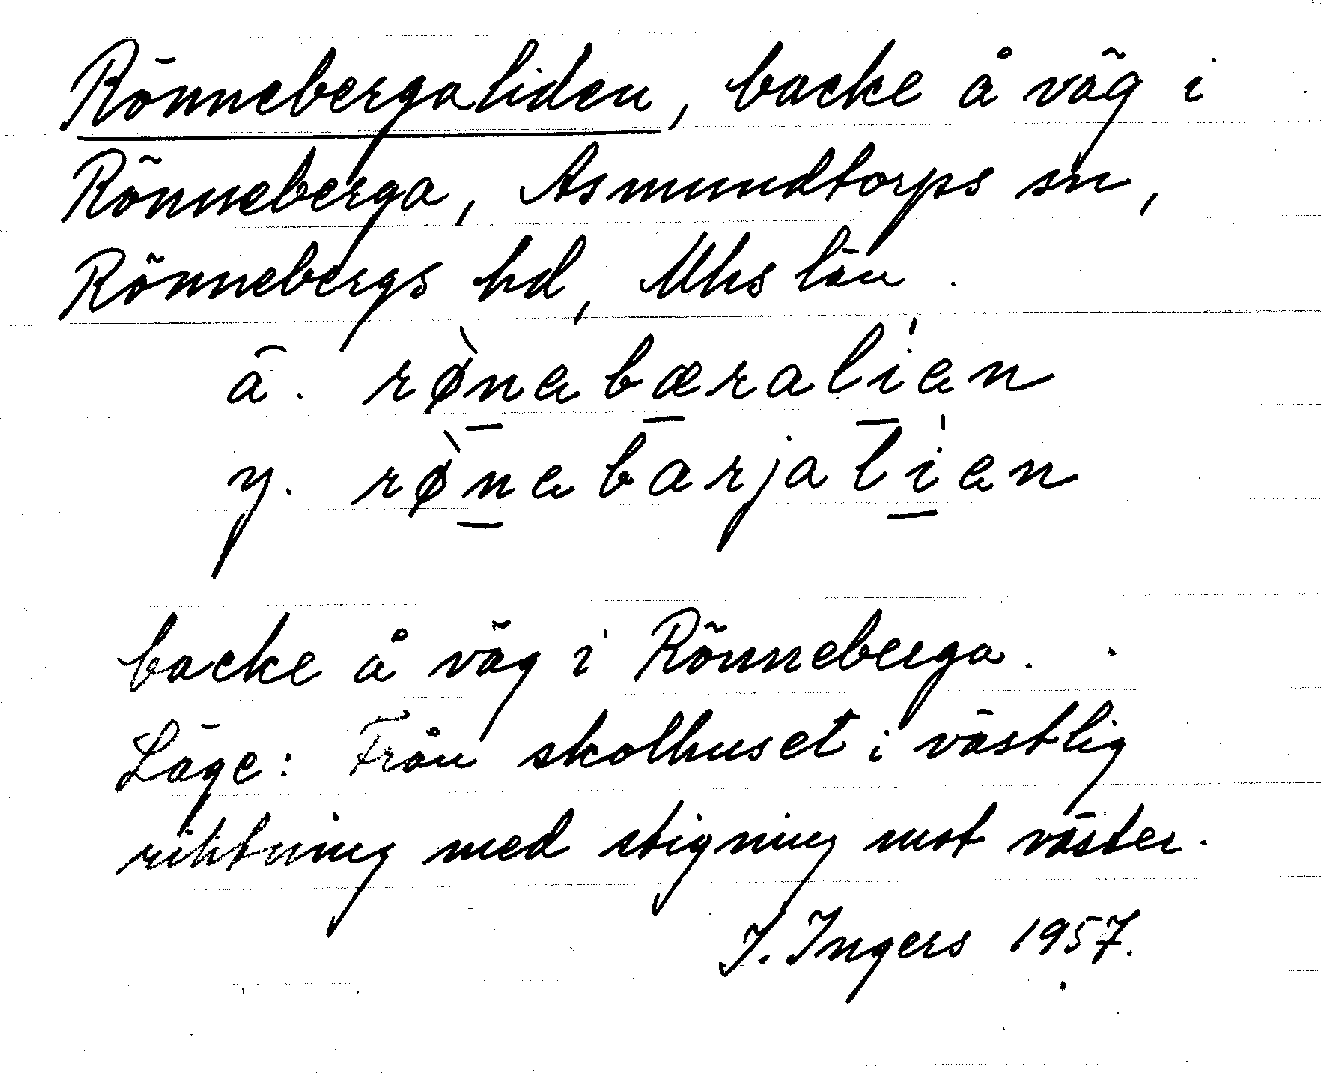 Rönnebergaliden, backe å väg i
Rönneberga, Asmundtorps sn,
Rönnebergs hd, Mhs län.
ä. rø̀nabæralían
y. rø̀nabarjalían
backe å väg i Rönneberga.
Läge: Från skolhuset i västlig
riktning med stigning mot väster.
I. Ingers 1957.